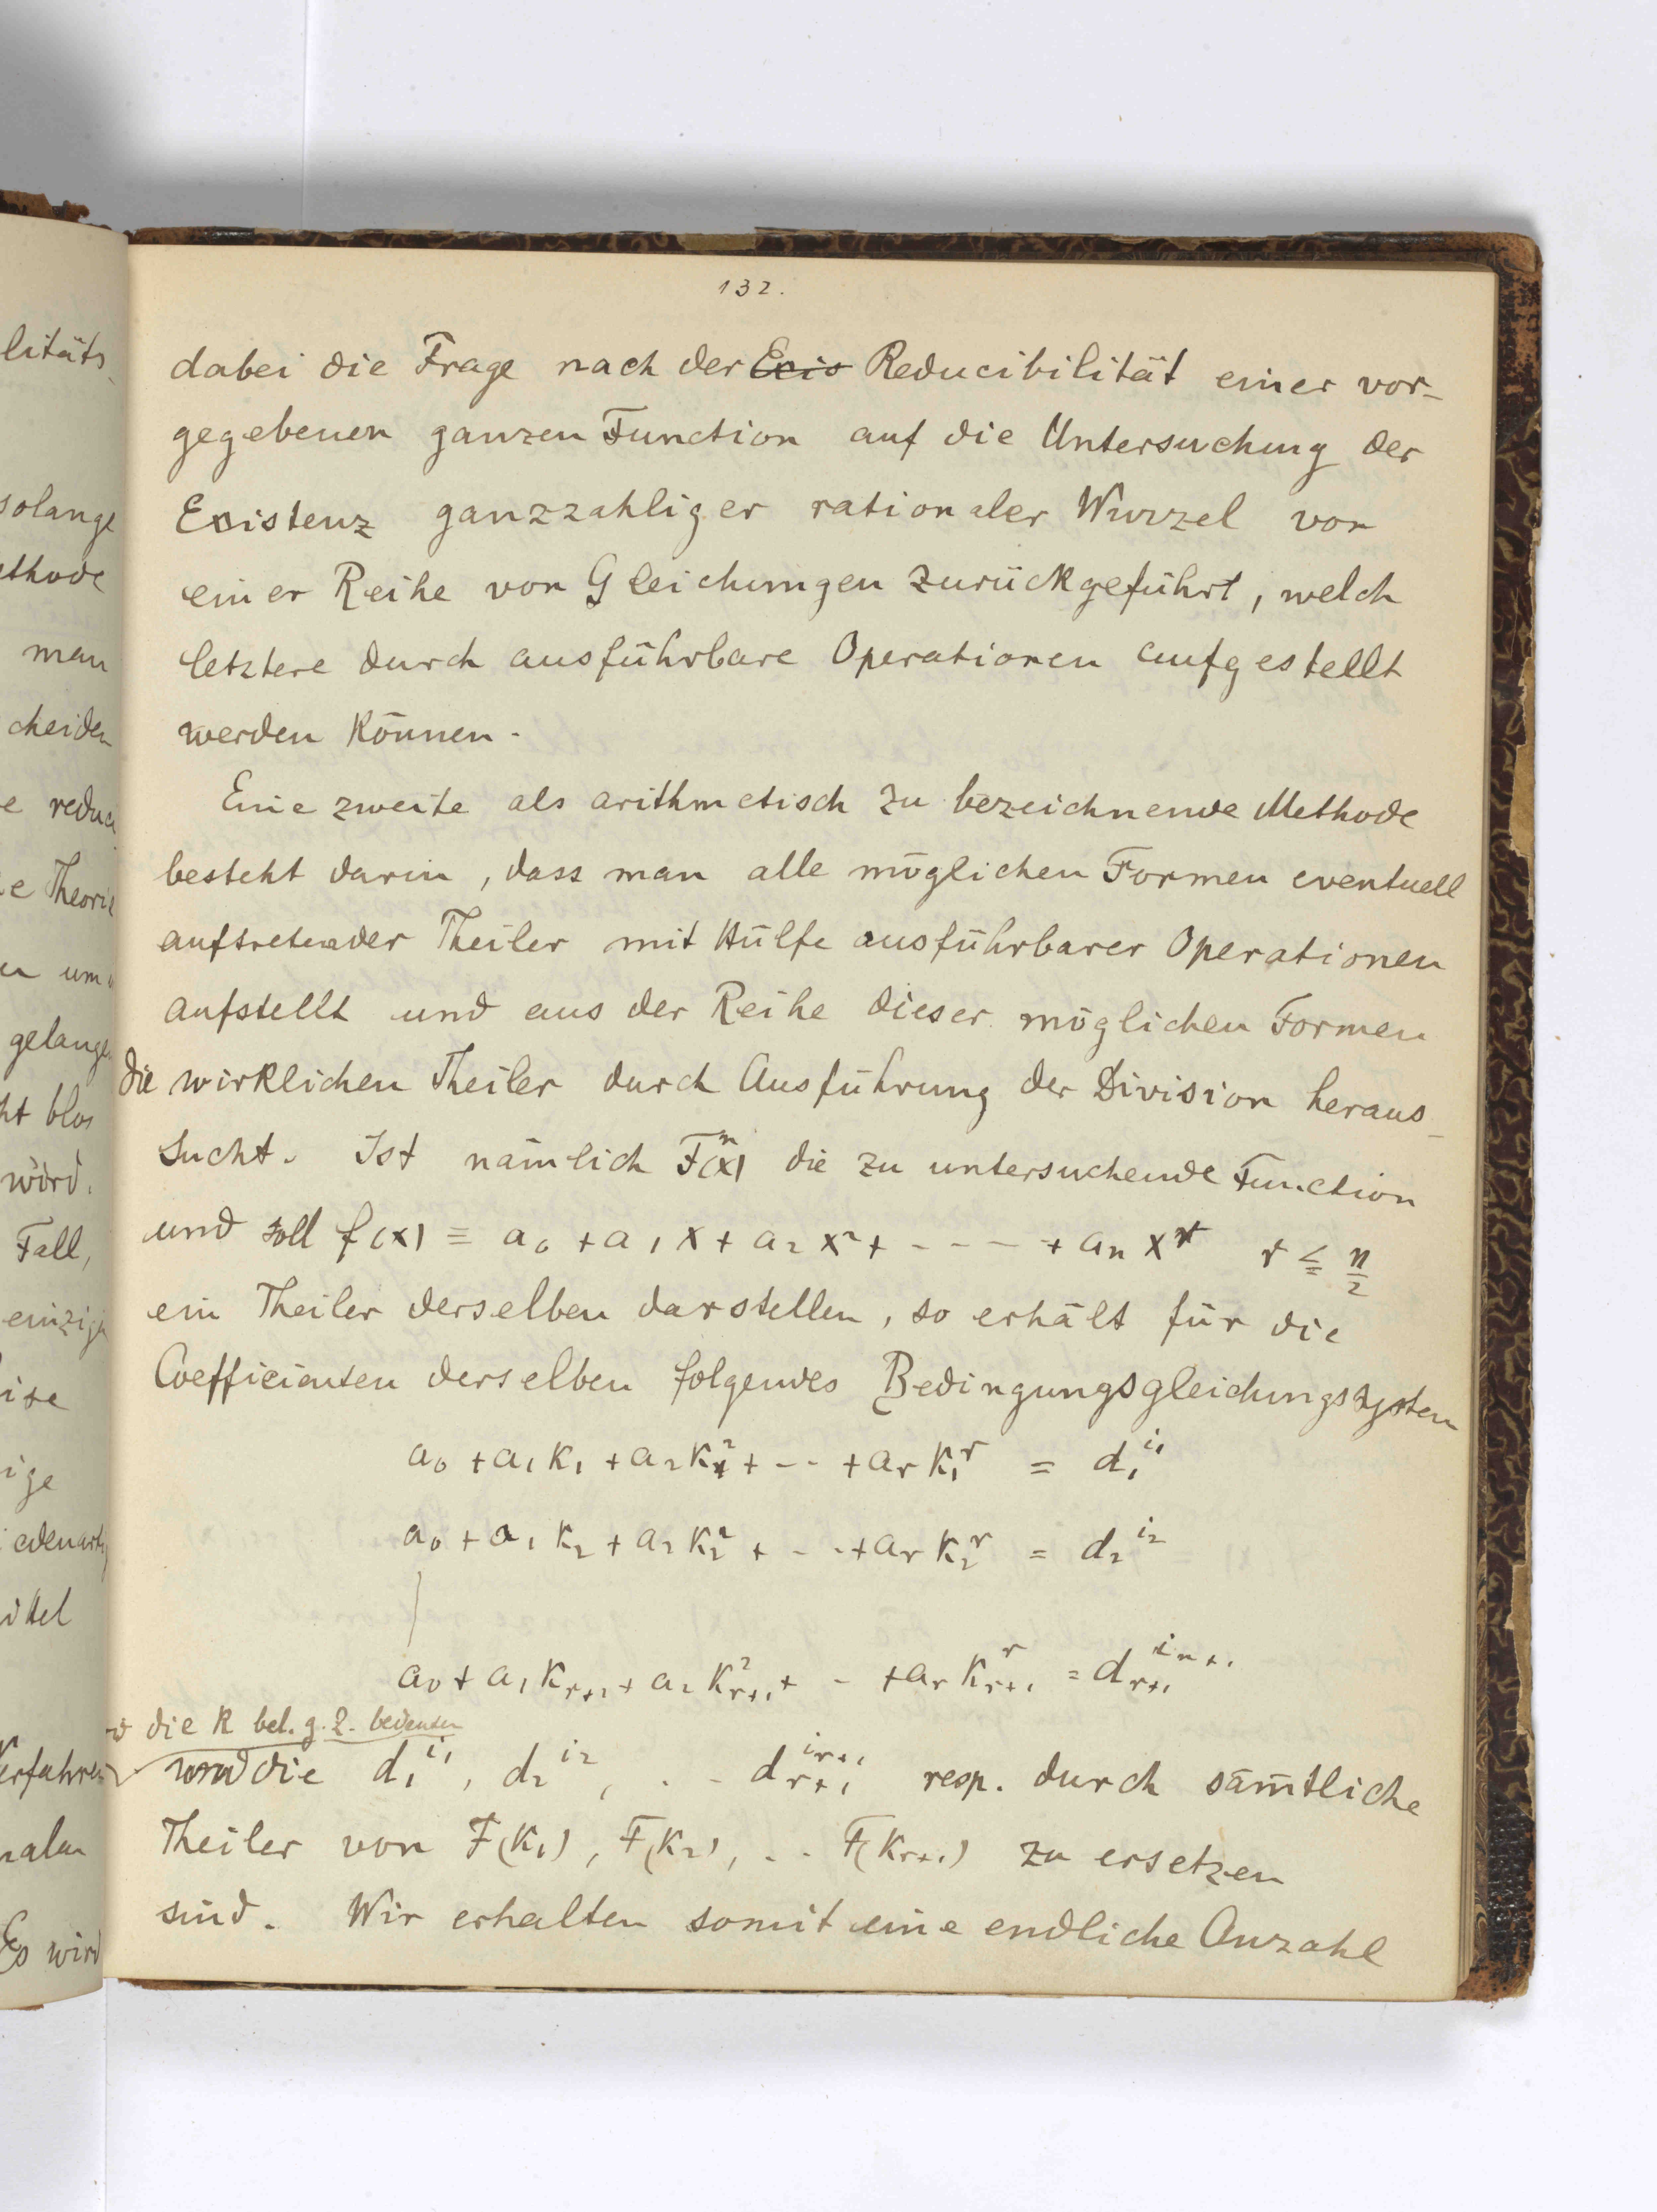 litäts
solange
ethode
man
cheiden
e reduci
e Theorie
n um
gelangen
ht blos
würd.
Fall,
einzige
ise
ige
edenartig
ittel
Verfahren
nalen
Es wird
132.
dabei die Frage nach der Exis Reducibilität einer vor-
gegebenen ganzen Function auf die Untersuchung der
Existenz ganzzahliger rationaler Wurzel von
einer Reihe von Gleichungen zurückgeführt, welch
letztere durch ausführbare Operationen aufgestellt
werden können.
Eine zweite als arithmetisch zu bezeichnende Methode
besteht darin, dass man alle möglichen Formen eventuell
auftretender Theiler mit Hülfe ausführbarer Operationen
aufstellt und aus der Reihe dieser möglichen Formen
die wirklichen Theiler durch Ausführung der Division heraus-
sucht. Ist nämlich Fⁿ(x) die zu untersuchende Function
und soll f(x) = a₀ + a₁x + a₂x² + - - - + aₙxʳ r ≦ n/2
ein Theiler derselben darstellen, so erhält für die
Coefficienten derselben folgendes Bedingungsgleichungssystem
a₀ + a₁k₁ + a₂k₁² + - - + aᵣk₁ʳ = d₁^{i₁}
a₀ + a₁k₂ + a₂k₂² + - - + aᵣk₂ʳ = d₂^{i₂}
a₀ + a₁k_{r+1} + a₂k²_{r+1} + - + aᵣkʳ_{r+1} = d_{r+1}^{i_{n+1}}
wo die k bel. g. Z. bedeuten
und die d₁^{i₁}, d₂^{i₂}, . - d_{r+1}^{i_{r+1}} resp. durch sämtliche
Theiler von F(k₁), F(k₂), . . F(k_{r+1}) zu ersetzen
sind. Wir erhalten somit eine endliche Anzahl